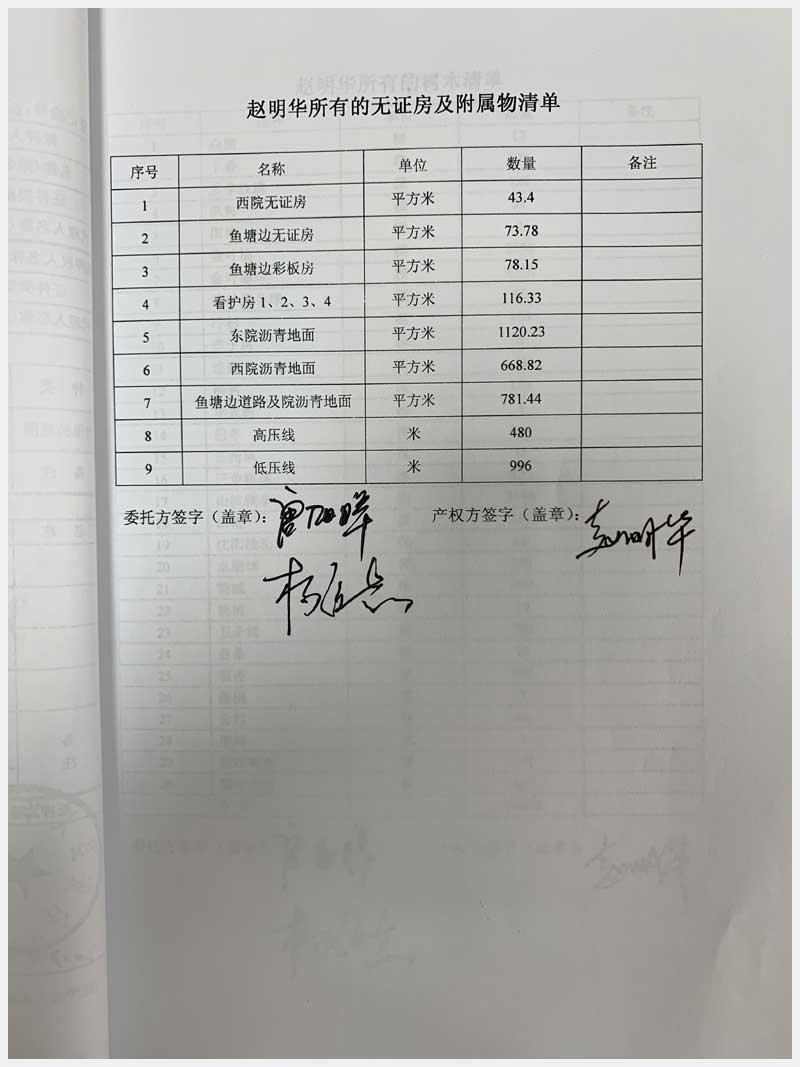 赵明华所有的无证房及附属物清单
序号 名称 单位 数量 备注
1 西院无证房 平方米 43.4
2 鱼塘边无证房 平方米 73.78
3 鱼塘边彩板房 平方米 78.15
4 看护房1、2、3、4 平方米 116.33
5 东院沥青地面 平方米 1120.23
6 西院沥青地面 平方米 668.82
7 鱼塘边道路及院沥青地面 平方米 781.44
8 高压线 米 480
9 低压线 米 996
委托方签字（盖章）： 产权方签字（盖章）：赵明华